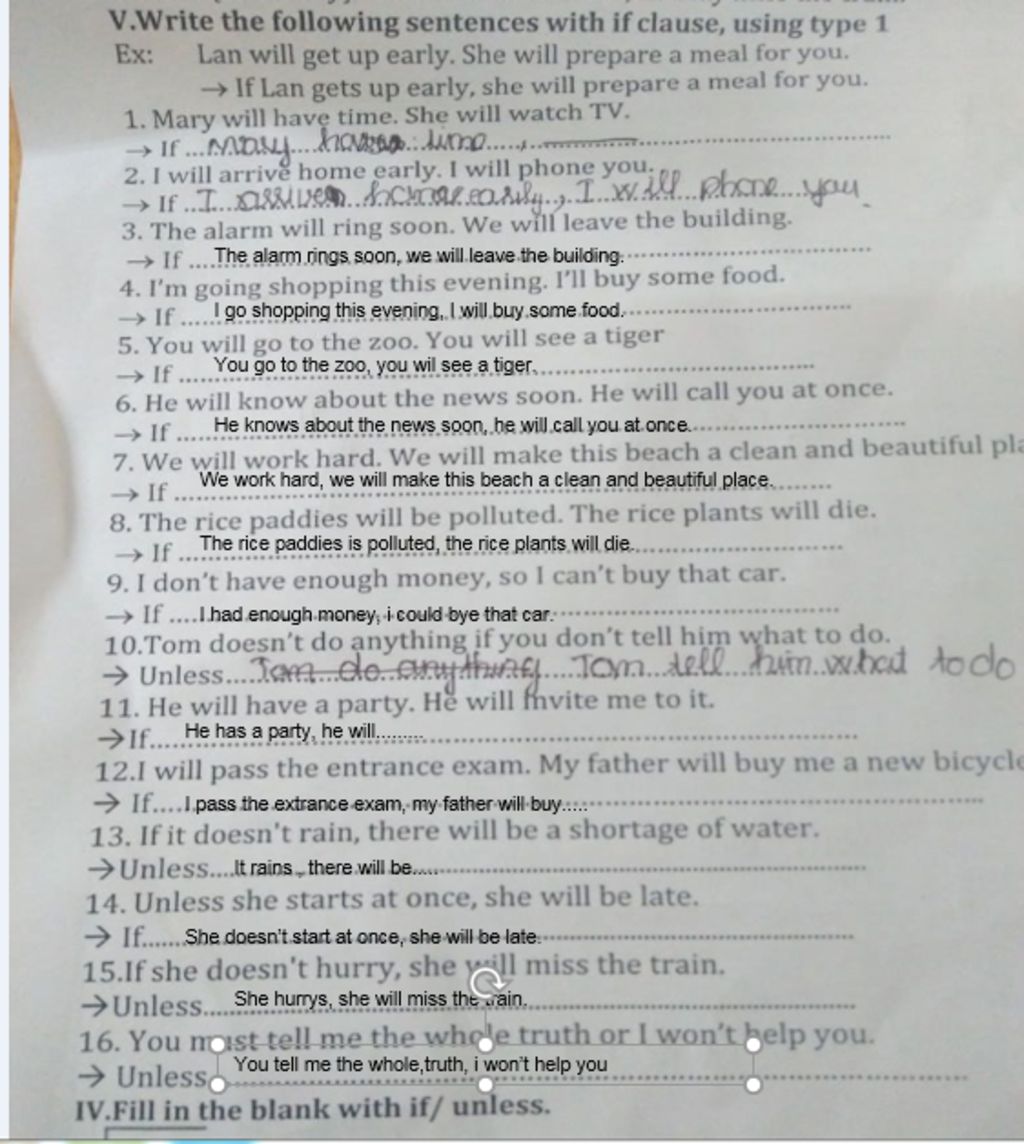 V.Write the following sentences with if clause, using type 1
Ex: Lan will get up early. She will prepare a meal for you.
→ If Lan gets up early, she will prepare a meal for you.
1. Mary will have time. She will watch TV.
→ If ... Mary has time ..., 
2. I will arrive home early. I will phone you.
→ If .. I arrive home early, I will phone you.
3. The alarm will ring soon. We will leave the building.
→ If .... The alarm rings soon, we will leave the building.
4. I'm going shopping this evening. I'll buy some food.
→ If ...... I go shopping this evening, I will buy some food.
5. You will go to the zoo. You will see a tiger
→ If ...... You go to the zoo, you wil see a tiger.
6. He will know about the news soon. He will call you at once.
→ If ...... He knows about the news soon, he will call you at once.
7. We will work hard. We will make this beach a clean and beautiful pla
→ If ...... We work hard, we will make this beach a clean and beautiful place.
8. The rice paddies will be polluted. The rice plants will die.
→ If ... The rice paddies is polluted, the rice plants will die.
9. I don't have enough money, so I can't buy that car.
→ If .... I had enough money, i could bye that car.
10.Tom doesn't do anything if you don't tell him what to do.
→ Unless.... Tom do anything Tom tell him what to do
11. He will have a party. He will invite me to it.
→If.... He has a party, he will.........
12.I will pass the entrance exam. My father will buy me a new bicycle
→ If.... I pass the extrance exam, my father will buy.....
13. If it doesn't rain, there will be a shortage of water.
→Unless.... It rains , there will be.....
14. Unless she starts at once, she will be late.
→ If....... She doesn't start at once, she will be late.
15.If she doesn't hurry, she will miss the train.
→Unless..... She hurrys, she will miss the train.
16. You must tell me the whole truth or I won't help you.
→ Unless You tell me the whole,truth, i won't help you
IV.Fill in the blank with if/ unless.